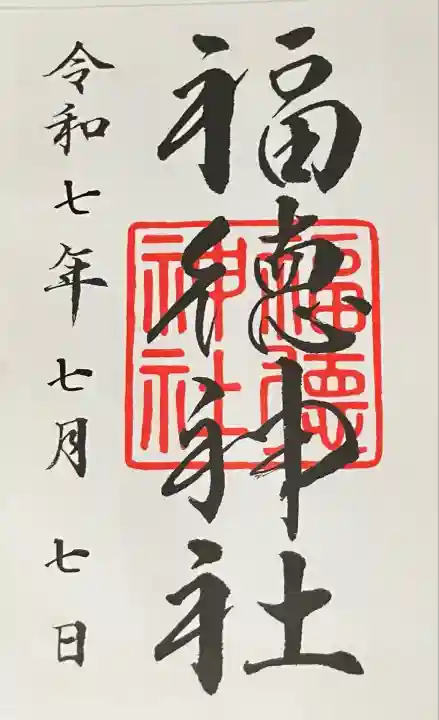 福徳神社
福徳神社
令和七年七月七日